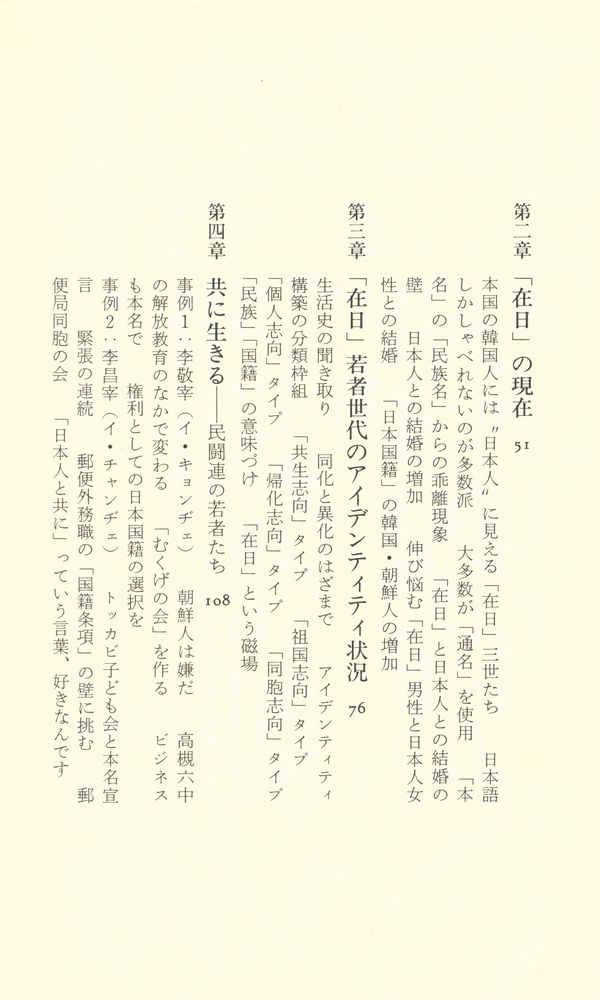 第二章　「在日」の現在　51
本国の韓国人には〝日本人〟に見える「在日」三世たち　日本語
しかしゃべれないのが多数派　大多数が「通名」を使用　「本
名」の「民族名」からの乖離現象　「在日」と日本人との結婚の
壁　日本人との結婚の増加　伸び悩む「在日」男性と日本人女
性との結婚　「日本国籍」の韓国・朝鮮人の増加
第三章　「在日」若者世代のアイデンティティ状況　76
生活史の聞き取り　同化と異化のはざまで　アイデンティティ
構築の分類枠組　「共生志向」タイプ　「祖国志向」タイプ
「個人志向」タイプ　「帰化志向」タイプ　「同胞志向」タイプ
「民族」「国籍」の意味づけ　「在日」という磁場
第四章　共に生きる――民闘連の若者たち　108
事例1：李敬宰（イ・キョンヂェ）　朝鮮人は嫌だ　高槻六中
の解放教育のなかで変わる　「むくげの会」を作る　ビジネス
も本名で　権利としての日本国籍の選択を
事例2：李昌宰（イ・チャンヂェ）　トッカビ子ども会と本名宣
言　緊張の連続　郵便外務職の「国籍条項」の壁に挑む　郵
便局同胞の会　「日本人と共に」っていう言葉、好きなんです